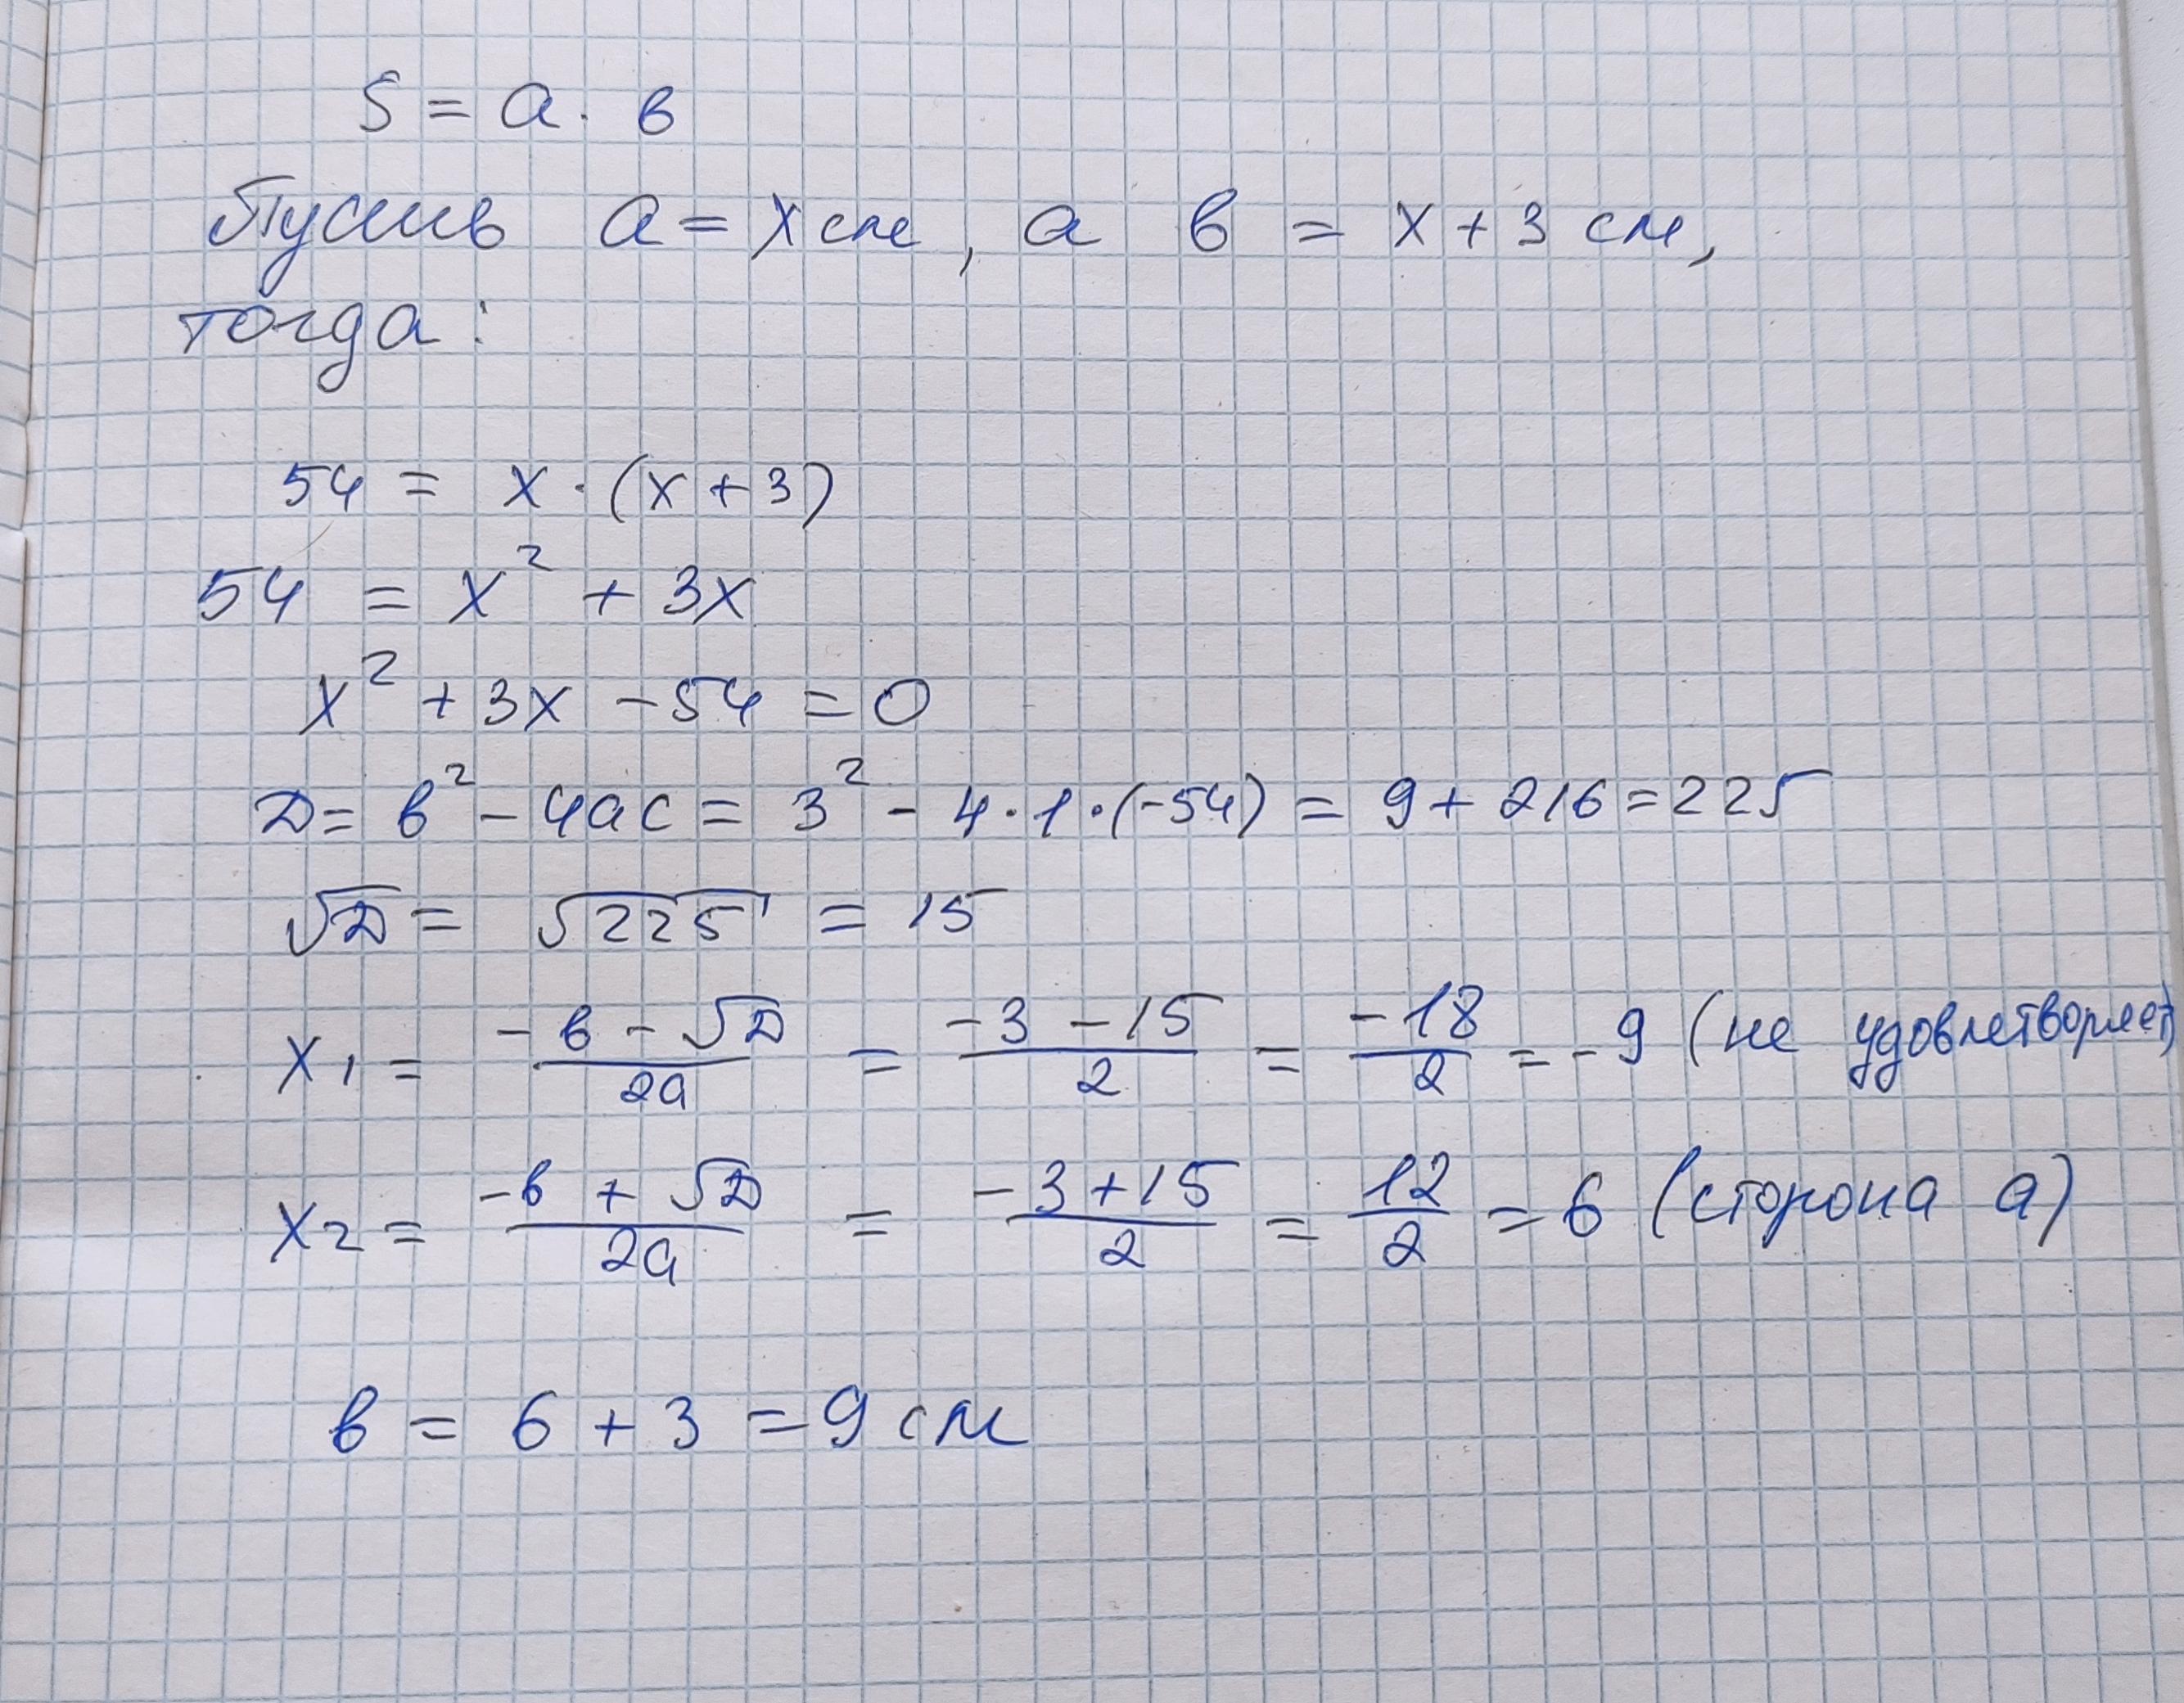 S = a · в
Пусть a = x см, а в = x + 3 см,
тогда:
54 = x · (x + 3)
54 = x² + 3x
x² + 3x - 54 = 0
Д = в² - 4ac = 3² - 4 · 1 · (-54) = 9 + 216 = 225
√Д = √225 = 15
x₁ = (-в - √Д)/2a = (-3 - 15)/2 = -18/2 = -9 (не удовлетворяет)
x₂ = (-в + √Д)/2a = (-3 + 15)/2 = 12/2 = 6 (сторона a)
в = 6 + 3 = 9 см